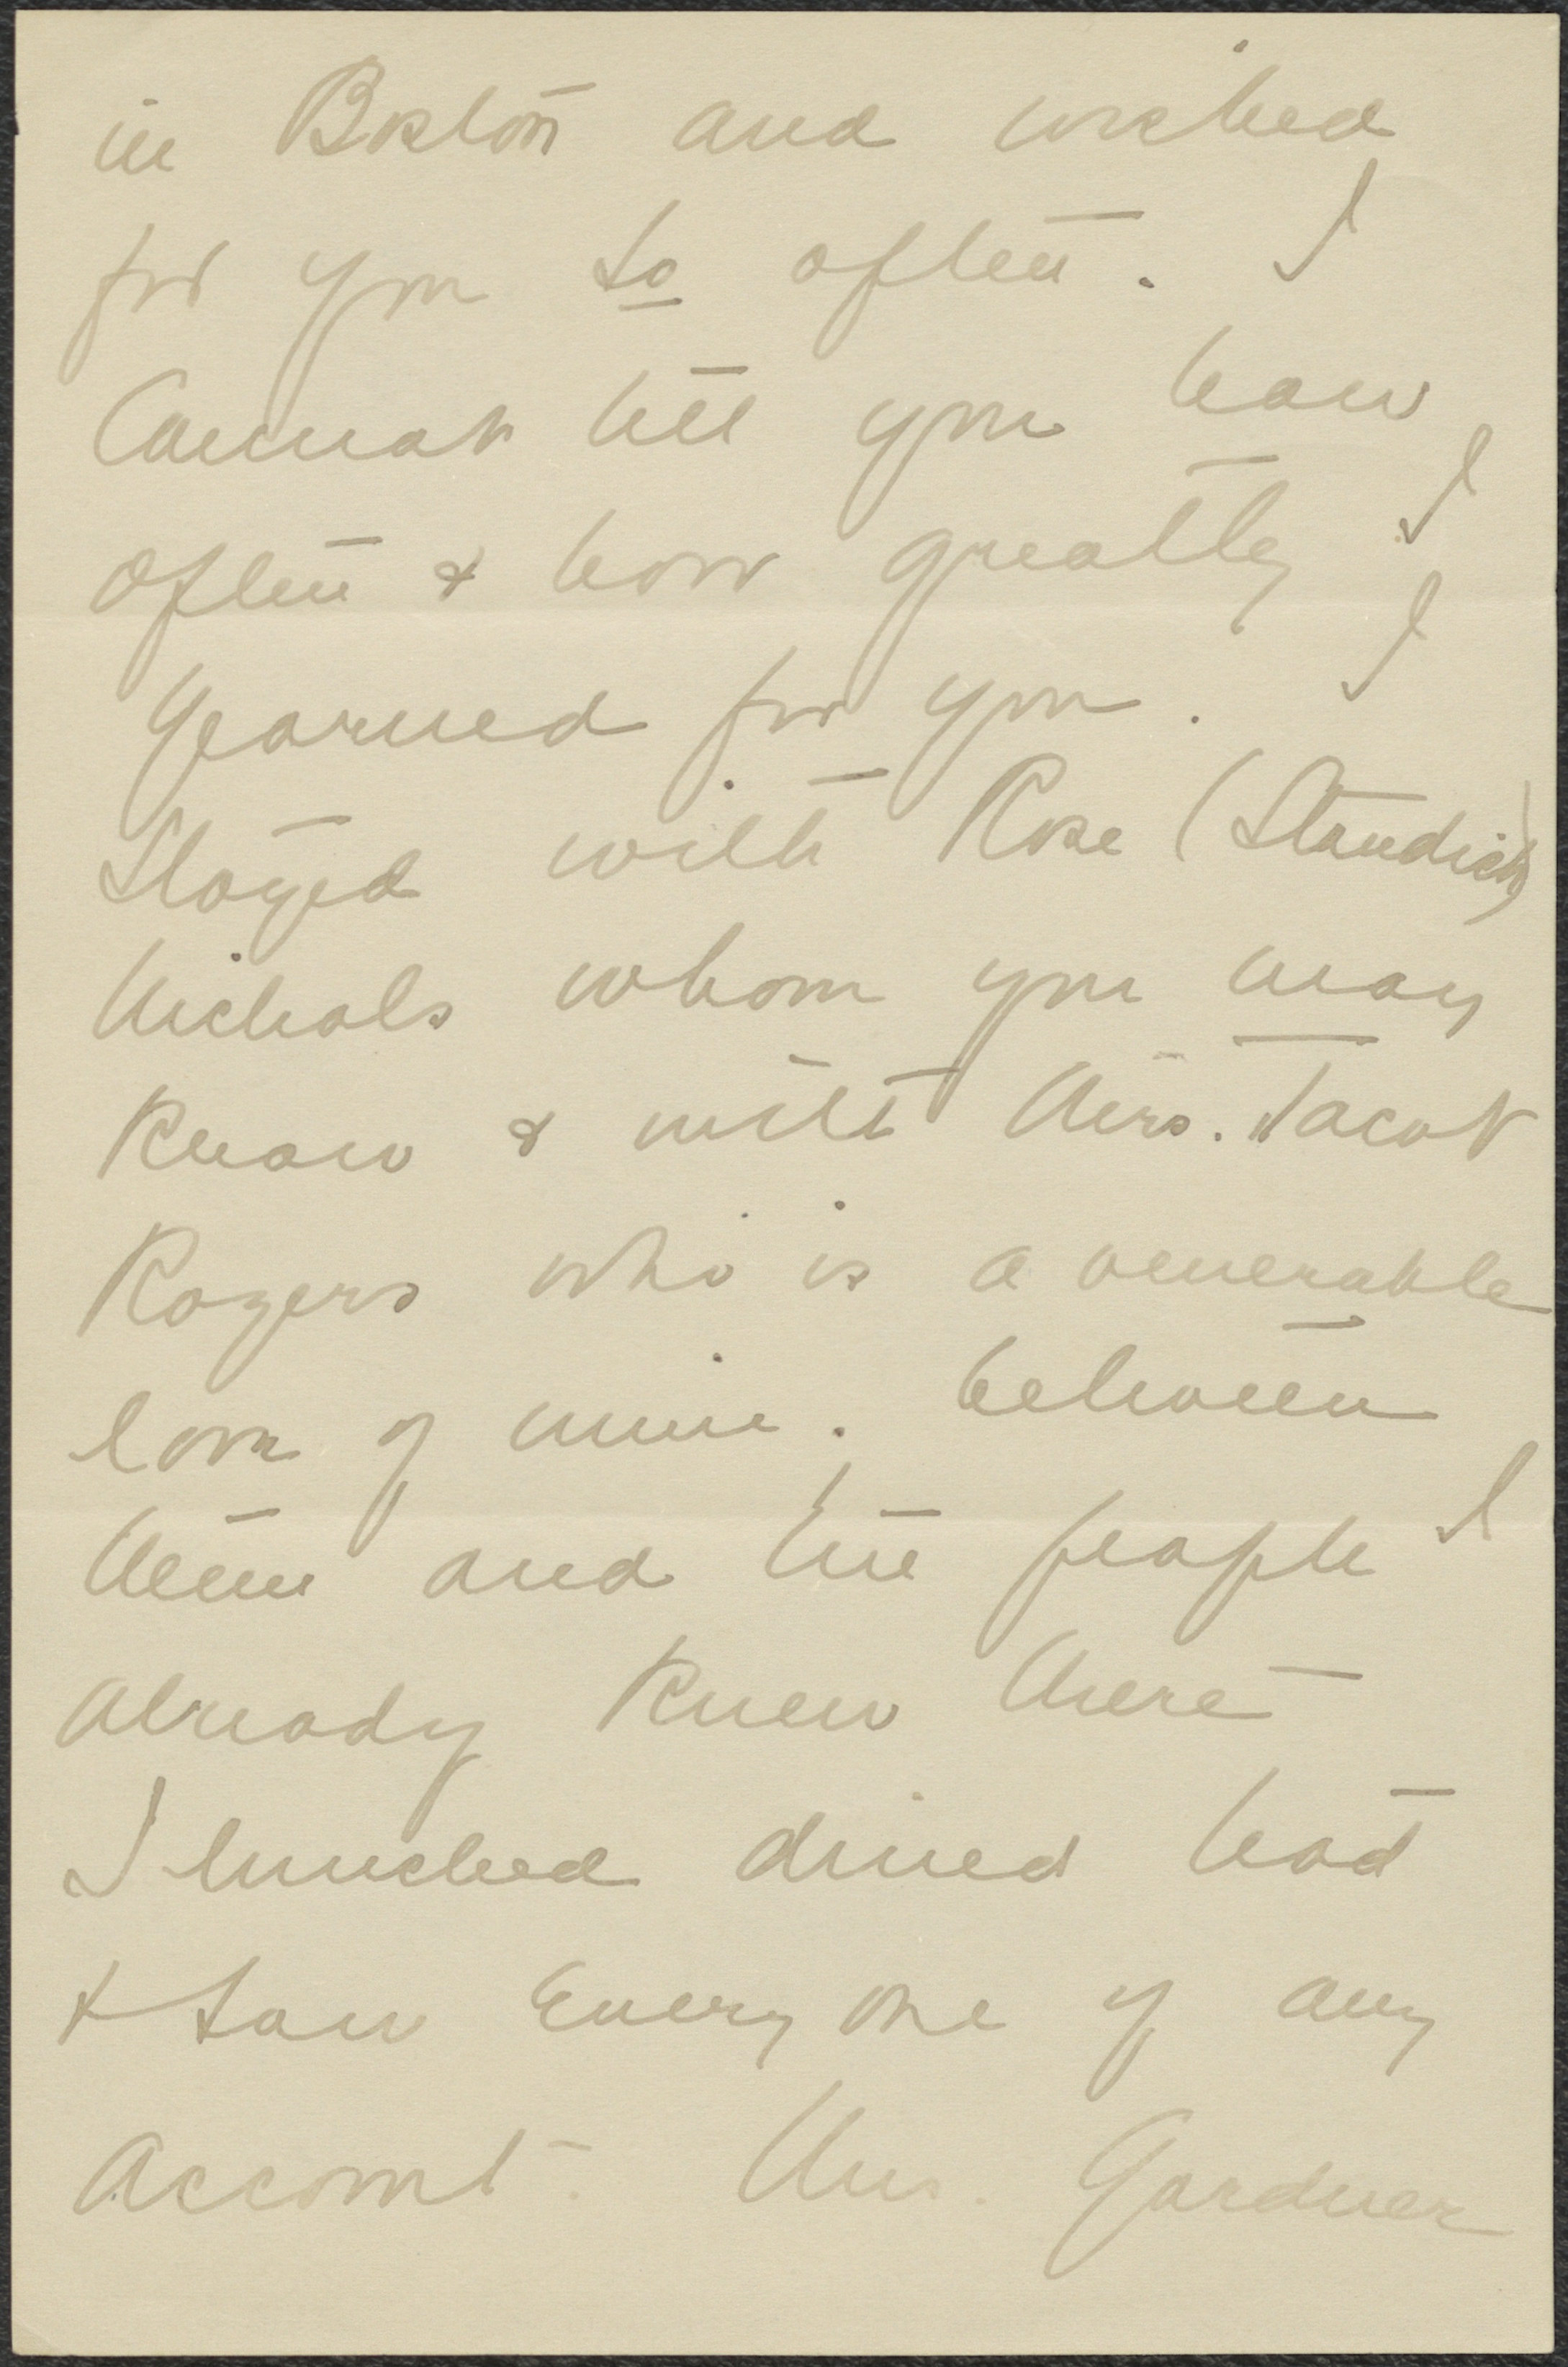 in Boston and wished
for you so often. I
Cannot tell you how
often & how greatly I
yearned for you. I
stayed with Rose (Standish)
Nichols whom you may
know & with Mrs. Jacob
Rogers who is a venerable
love of mine. between
them and the people I
already knew there
I lunched dined had
& saw every one of any
account. Mrs. Gardner